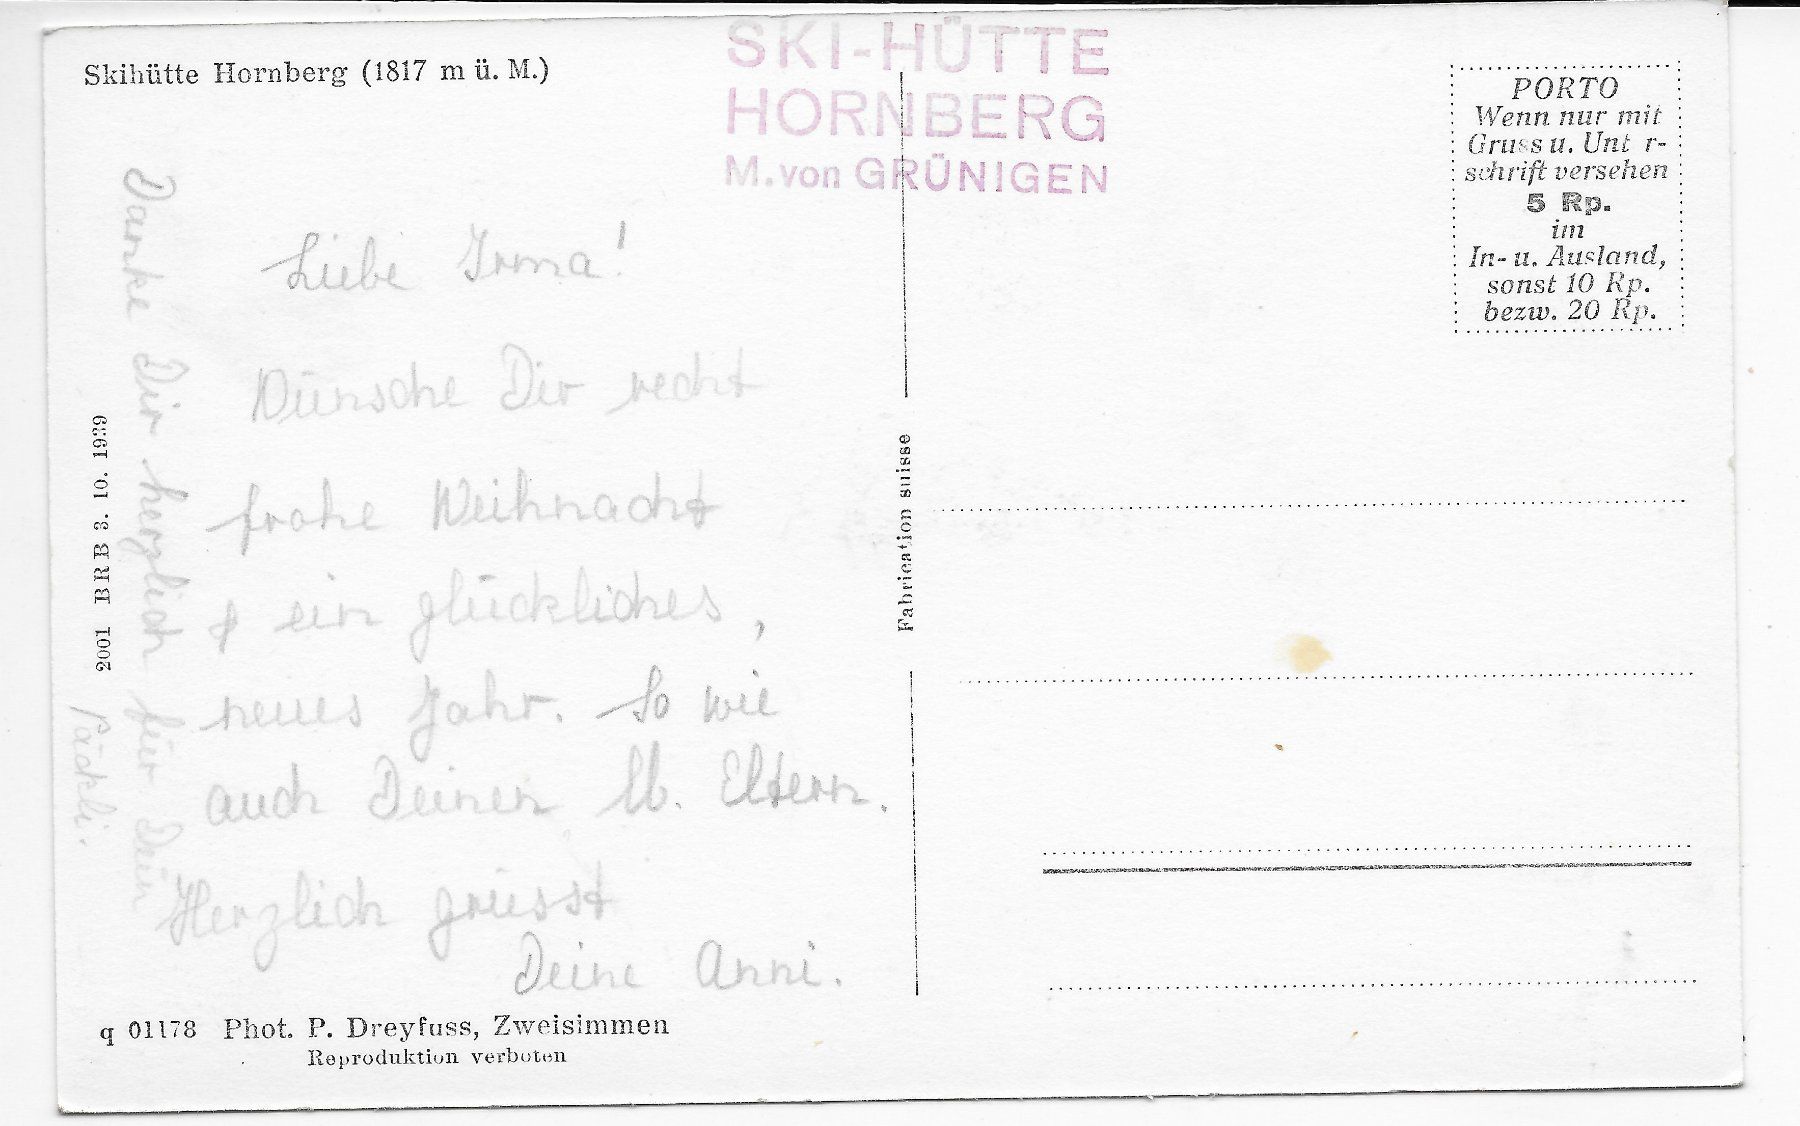 Skihütte Hornberg (1817 m ü. M.)
SKI-HÜTTE
HORNBERG
M. von GRÜNIGEN
PORTO
Wenn nur mit
Gruss u. Unt r-
schrift versehen
5 Rp.
im
In- u. Ausland,
sonst 10 Rp.
bezw. 20 Rp.
Liebe Irma!
Wünsche Dir recht
frohe Weihnacht
& ein glückliches,
neues Jahr. So wie
auch Deinen lb. Eltern.
Herzlich grüsst
Deine Anni.
Danke Dir herzlich für Dein
Päckli.
2001 BRB 3. 10. 1939
Fabrication suisse
q 01178 Phot. P. Dreyfuss, Zweisimmen
Reproduktion verboten